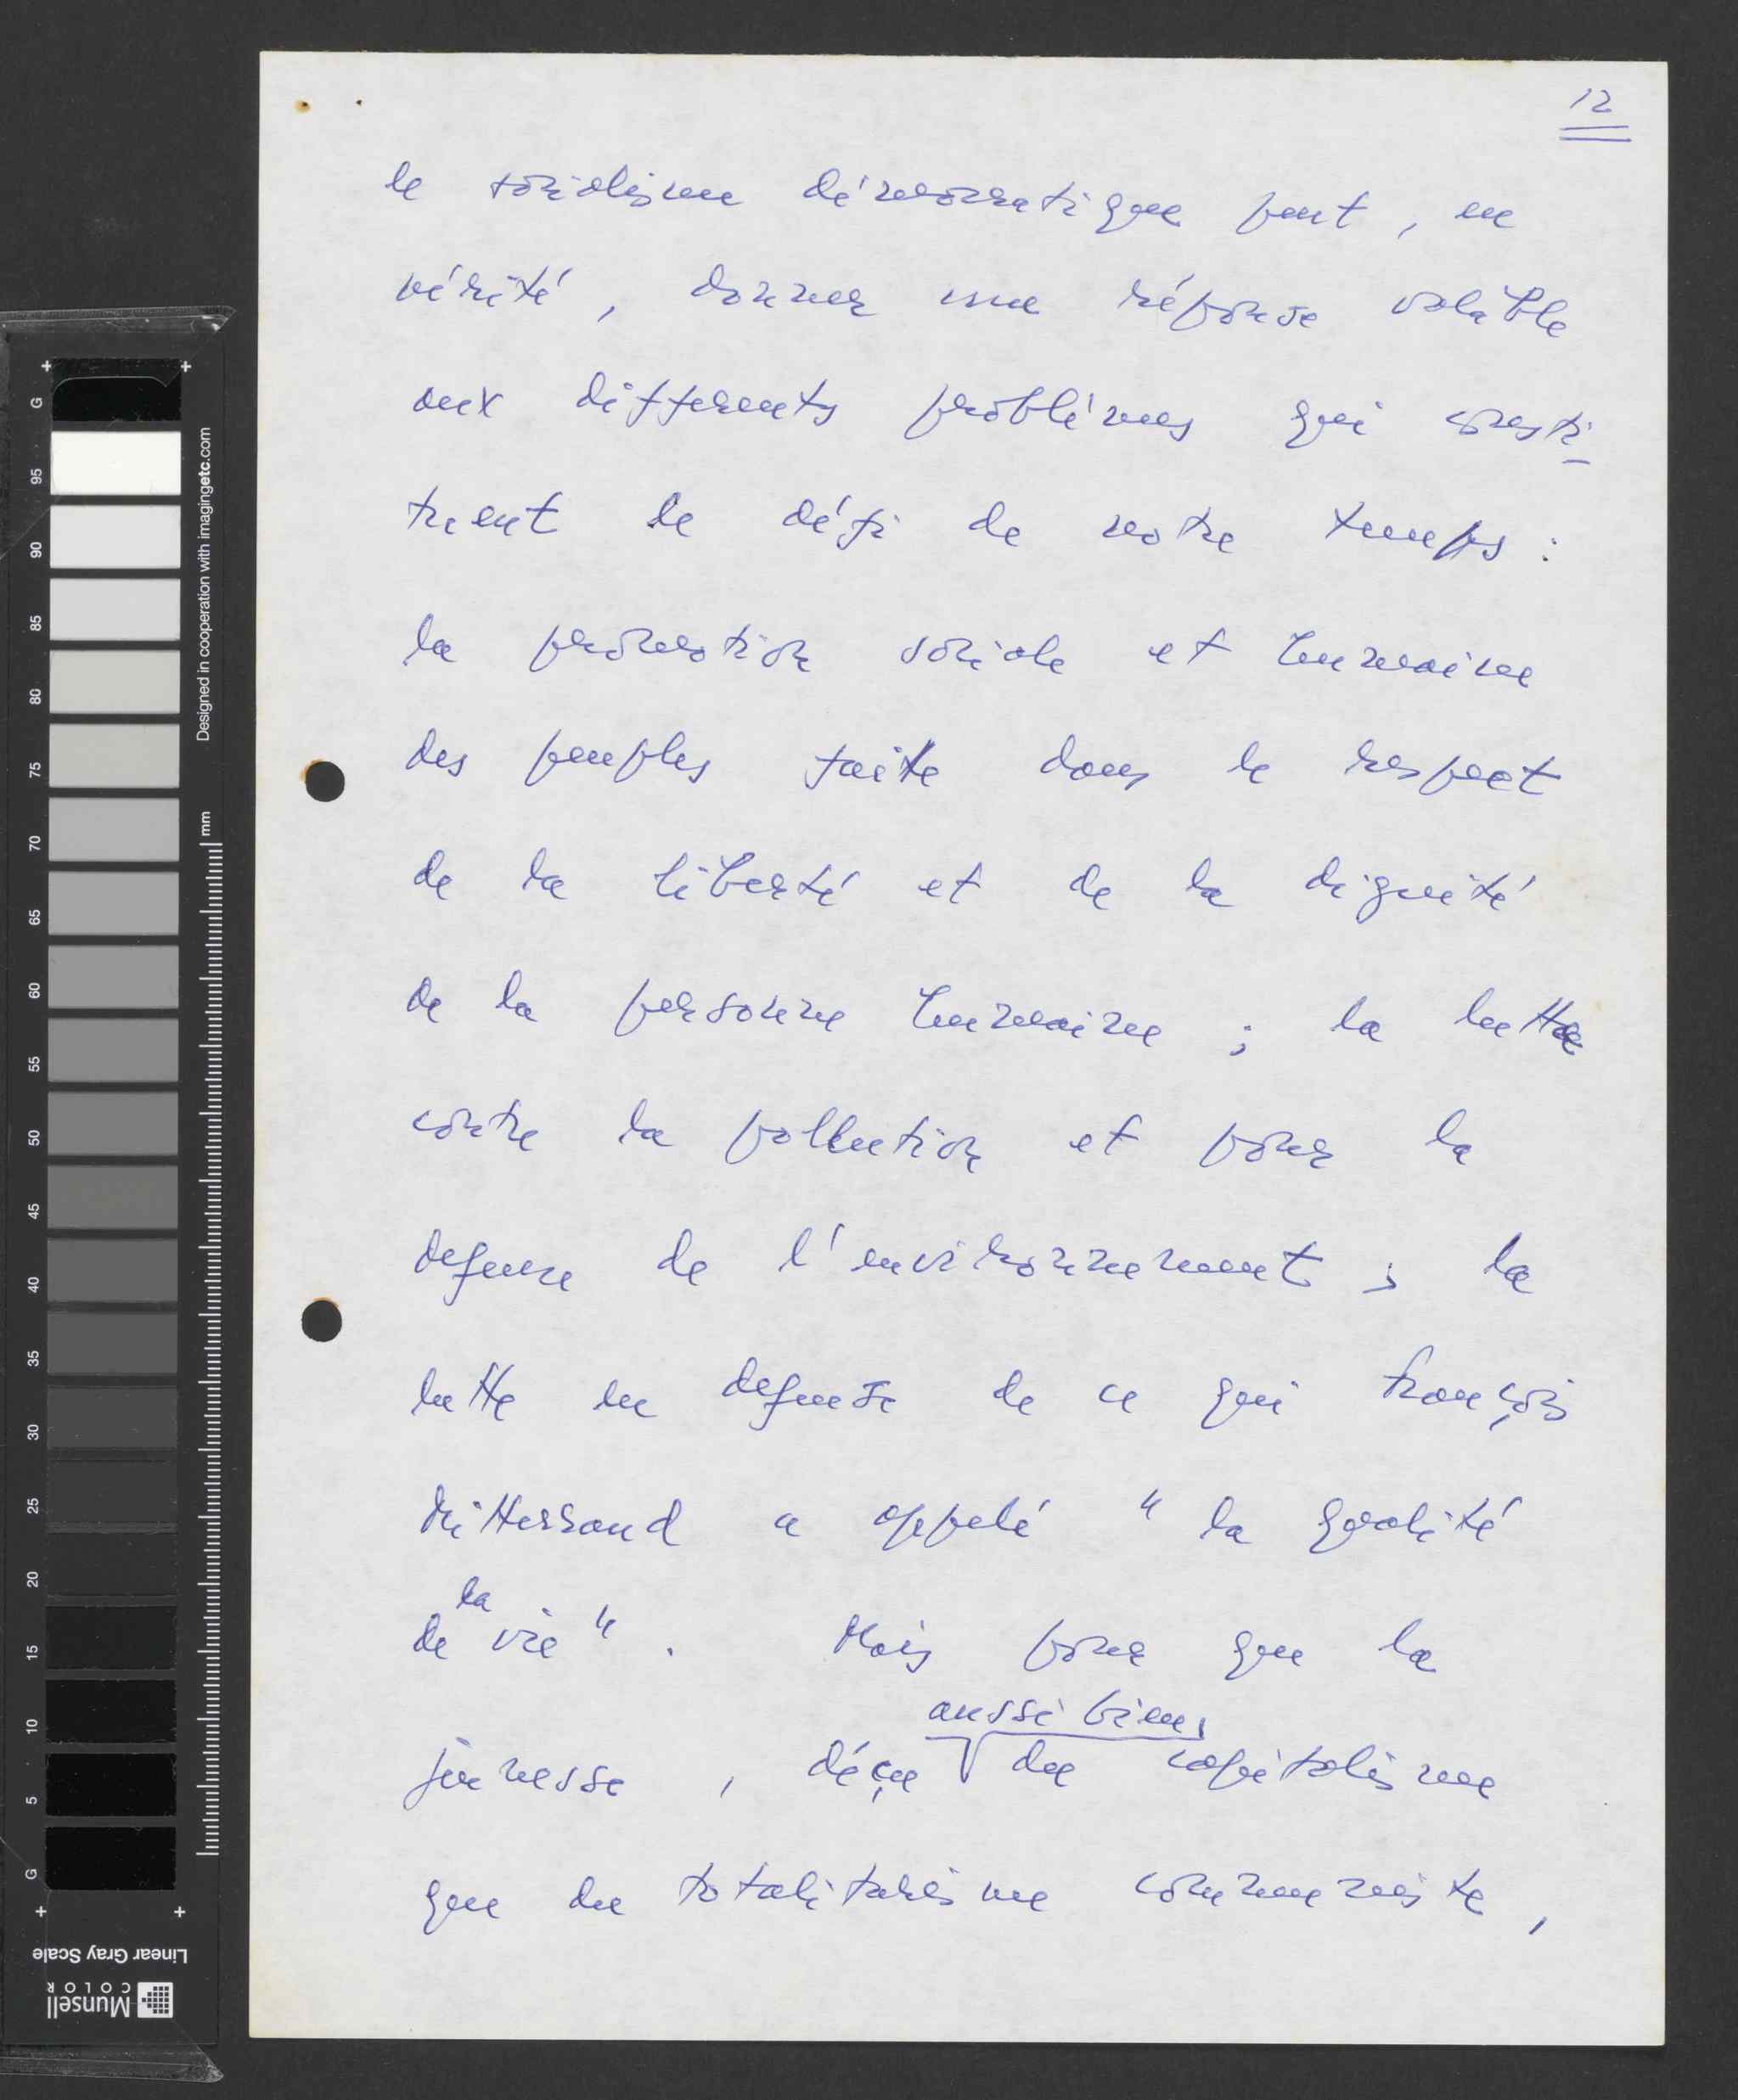 12
le socialisme démocratique peut, en
vérité, donner une réponse valable
aux differents problémes qui consti-
tuent le défi de notre temps :
la promotion sociale et humaine
des peuples faite dans le respect
de la liberté et de la dignité
de la personne humaine ; la lutte
contre la pollution et pour la
defense de l'environnement ; la
lutte en defense de ce qui François
Mitterrand a appelé "la qualité
de la vie". Mais pour que la
aussi bien,
jeunesse, déçue du capitalisme
que du totalitarisme communiste,
G
95
90
85
80
75
70
65
60
55
50
45
40
35
30
25
20
15
10
5
G
Designed in cooperation with imagingetc.com
mm
Linear Gray Scale
Munsell
COLOR